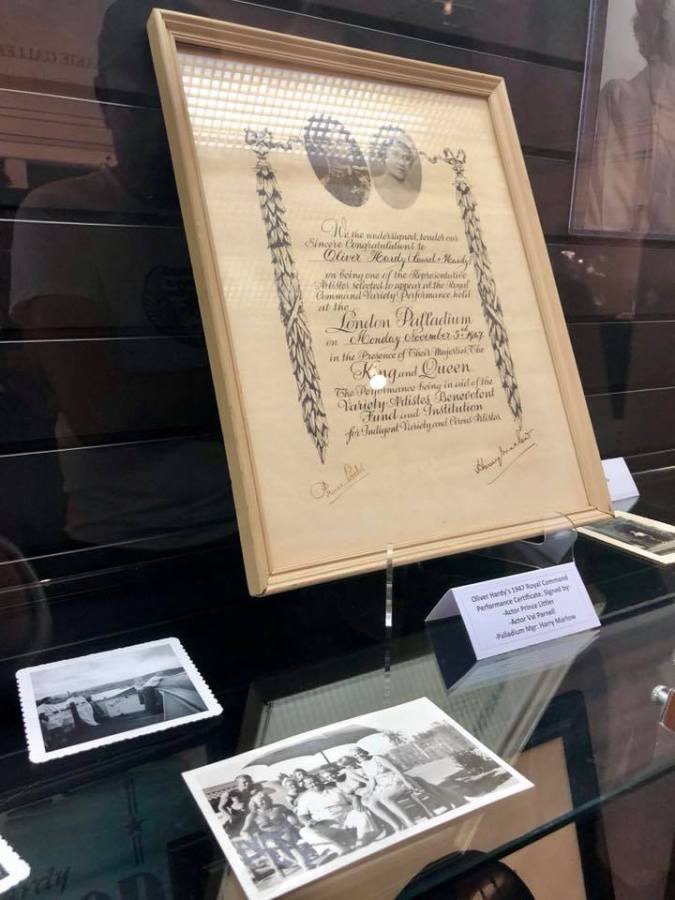 We the undersigned, tender our
Sincere Congratulations to
Oliver Hardy (Laurel & Hardy)
on being one of the Representative
Artistes selected to appear at the Royal
Command Variety Performance held
at the
London Palladium
on Monday November 3rd 1947
in the Presence of Their Majesties The
King and Queen
The Performance being in aid of the
Variety Artistes Benevolent
Fund and Institution
for Indigent Variety and Circus Artistes
Harry Marlow
Oliver Hardy's 1947 Royal Command
Performance Certificate. Signed by:
-Actor Prince Littler
-Actor Val Parnell
-Palladium Mgr. Harry Marlow